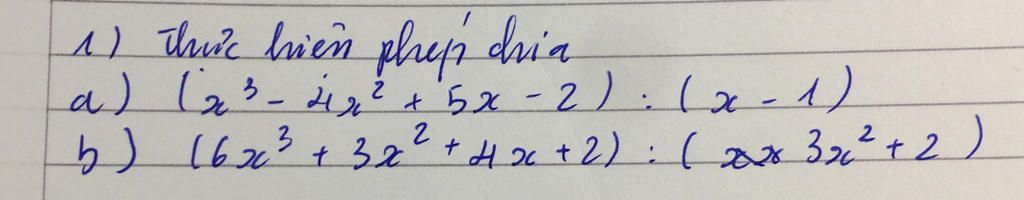 1) Thực hiên phép chia
a) (x³ - 4x² + 5x - 2) : (x - 1)
b) (6x³ + 3x² + 4x + 2) : ( 3x² + 2 )